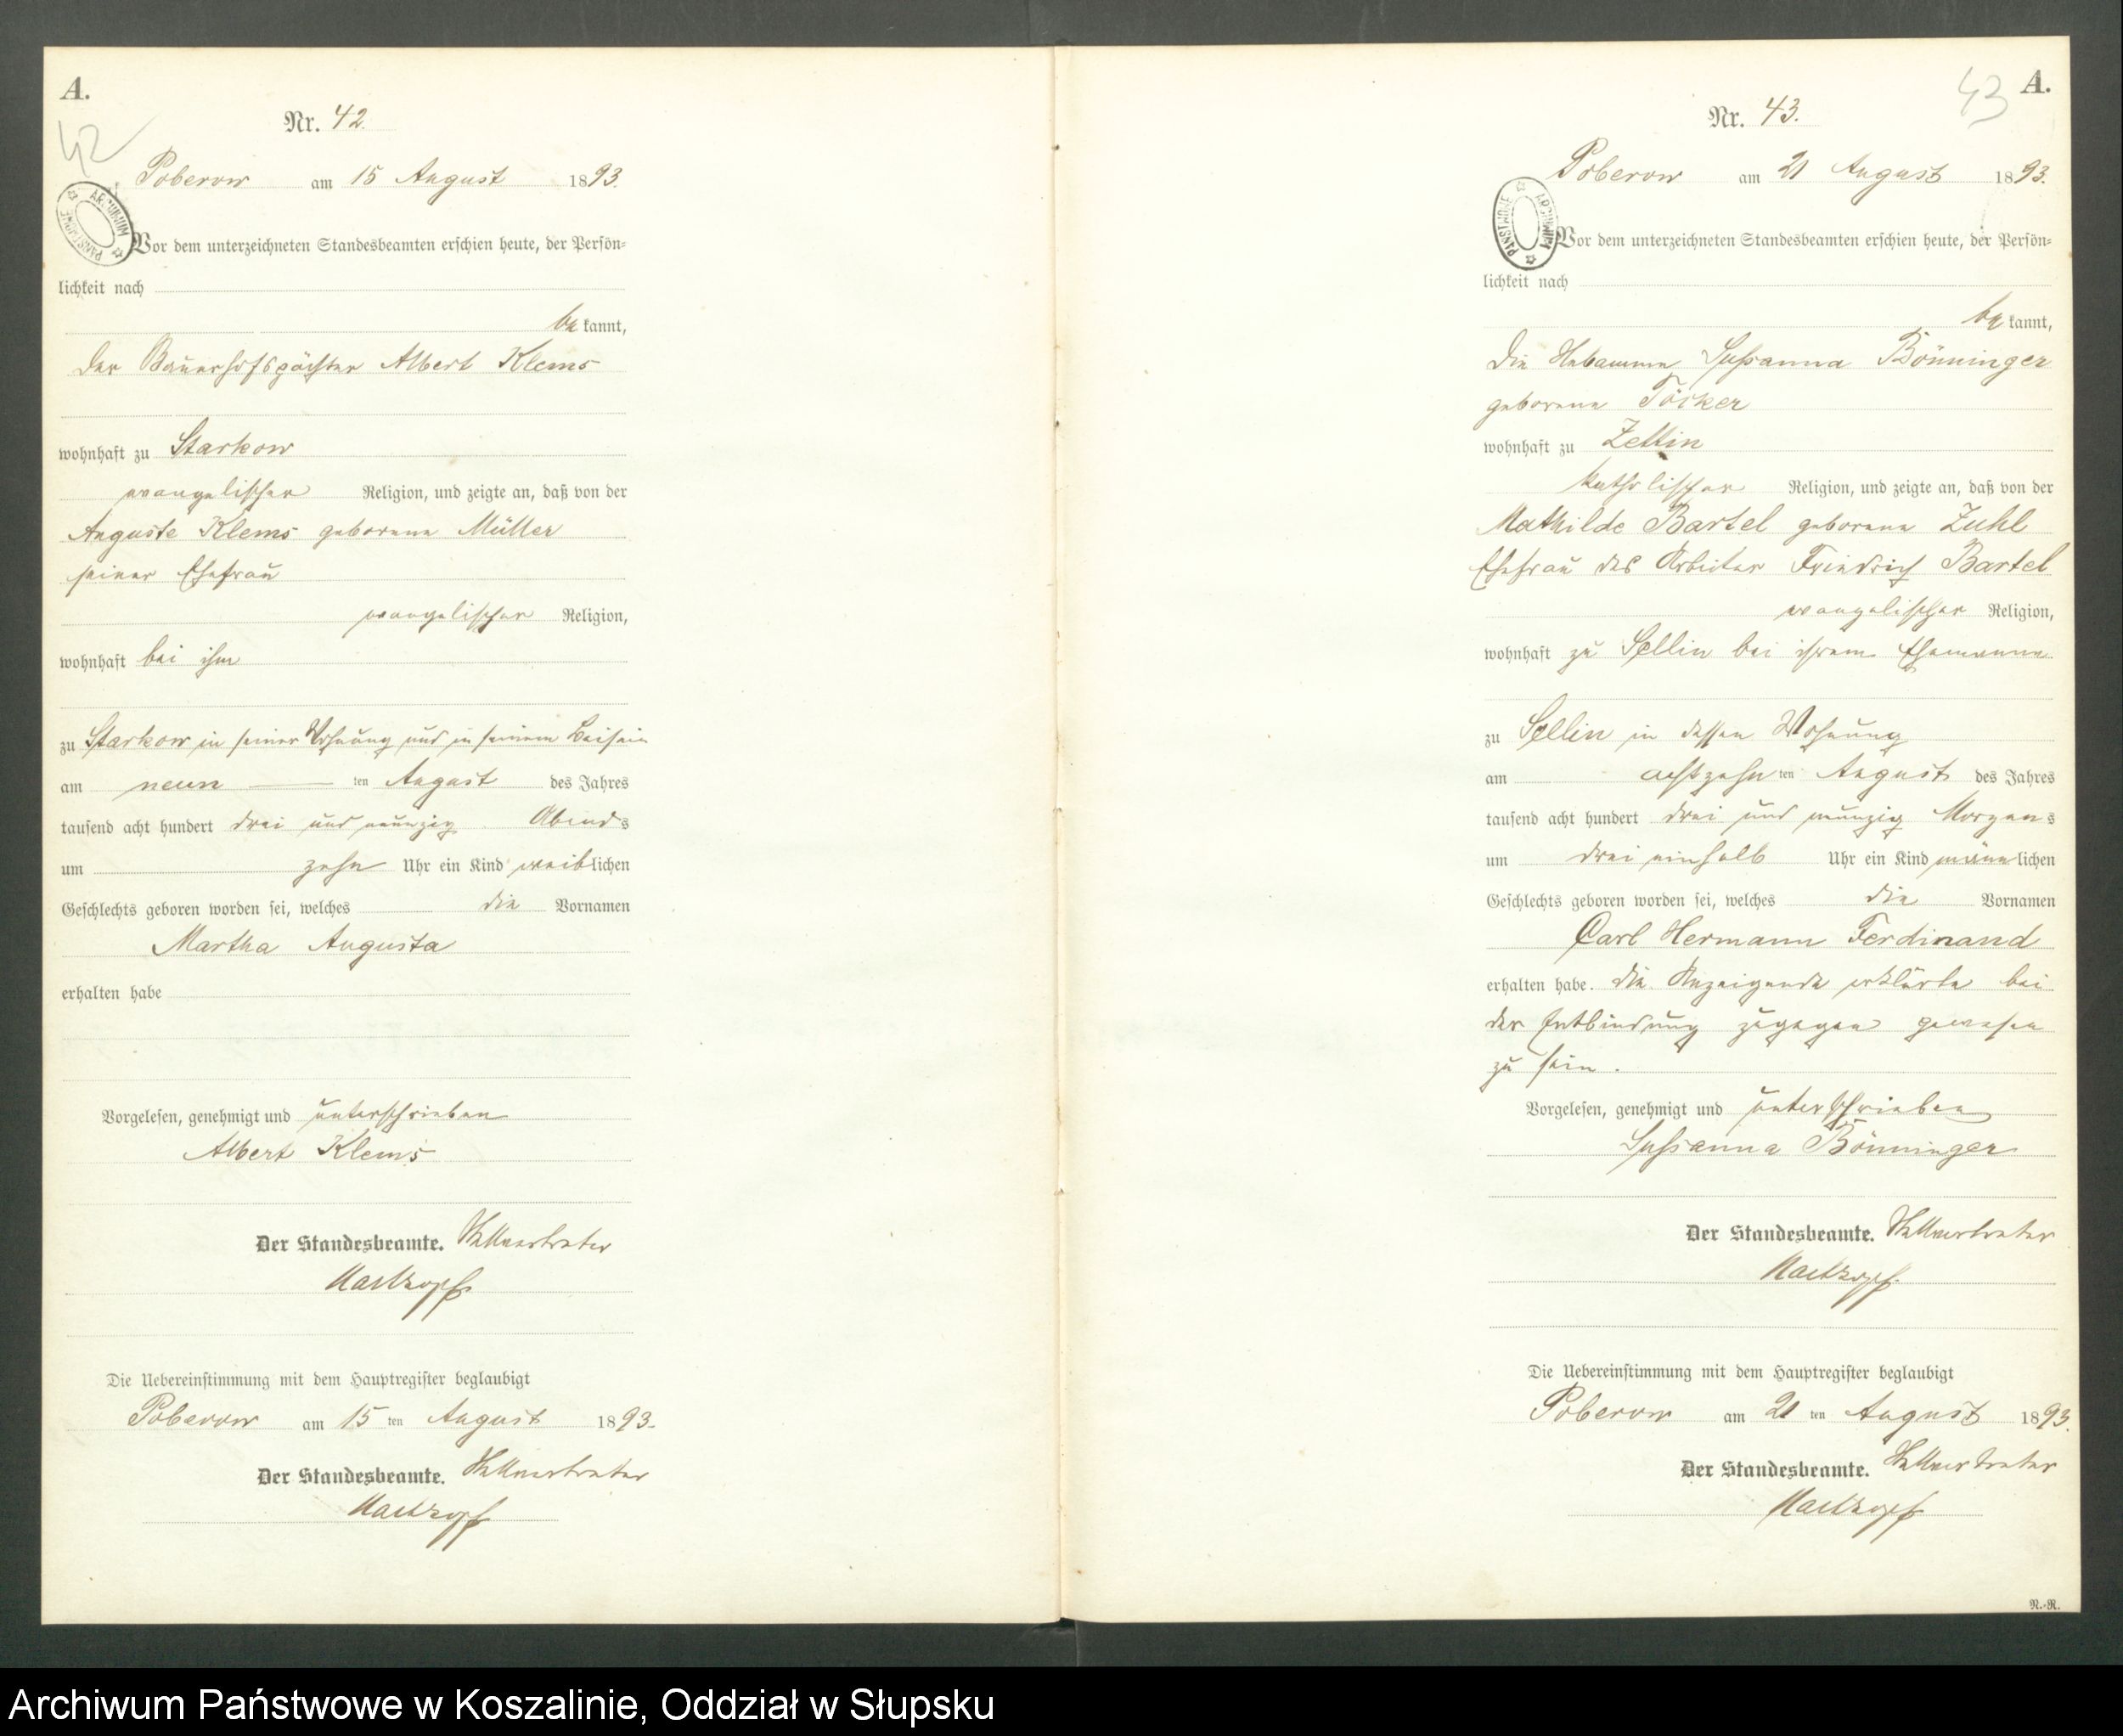 A.
42
Nr. 42.
Poberow am 15 August 1893.
ARCHIWUM PAŃSTWOWE
Vor dem unterzeichneten Standesbeamten erschien heute, der Persön=
lichkeit nach
be kannt,
der Bauerhofspächter Albert Klems
wohnhaft zu Starkow
evangelischer Religion, und zeigte an, daß von der
Auguste Klems geborene Müller
seiner Ehefrau
evangelischer Religion,
wohnhaft bei ihm
zu Starkow in seiner Wohnung und in seinem Beisein
am neun ten August des Jahres
tausend acht hundert drei und neunzig Abends
um zehn Uhr ein Kind weiblichen
Geschlechts geboren worden sei, welches die Vornamen
Martha Augusta
erhalten habe
Vorgelesen, genehmigt und unterschrieben
Albert Klems
Der Standesbeamte. Stellvertreter
Die Uebereinstimmung mit dem Hauptregister beglaubigt
Poberow am 15 ten August 1893.
Der Standesbeamte. Stellvertreter
43 A.
Nr. 43.
Poberow am 21 August 1893.
ARCHIWUM PAŃSTWOWE
Vor dem unterzeichneten Standesbeamten erschien heute, der Persön=
lichkeit nach
be kannt,
die Hebamme Sussanna Bönninger
geborene Töcker
wohnhaft zu Zettin
katholischer Religion, und zeigte an, daß von der
Mathilde Bartel geborene Zuhl
Ehefrau des Arbeiter Friedrich Bartel
evangelischer Religion,
wohnhaft zu Sellin bei ihrem Ehemanne
zu Sellin in dessen Wohnung
am achtzehn ten August des Jahres
tausend acht hundert drei und neunzig Morgens
um drei einhalb Uhr ein Kind männlichen
Geschlechts geboren worden sei, welches die Vornamen
Carl Hermann Ferdinand
erhalten habe. Die Anzeigende erklärte bei
der Entbindung zugegen gewesen
zu sein.
Vorgelesen, genehmigt und unterschrieben
Sussanna Bönninger
Der Standesbeamte. Stellvertreter
Die Uebereinstimmung mit dem Hauptregister beglaubigt
Poberow am 21 ten August 1893.
Der Standesbeamte. Stellvertreter
N.-R.
Archiwum Państwowe w Koszalinie, Oddział w Słupsku